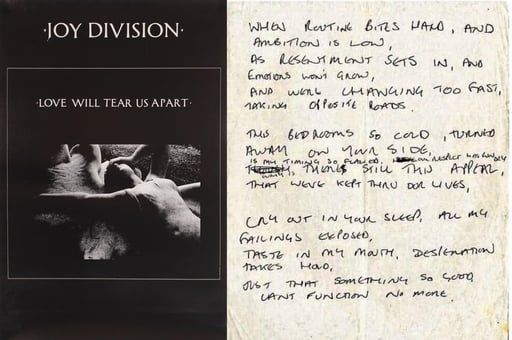 ·JOY DIVISION·
·LOVE WILL TEAR US APART·
WHEN ROUTINE BITES HARD, AND
AMBITION IS LOW,
AS RESENTMENT SETS IN, AND
EMOTIONS WON'T GROW,
AND WERE CHANGING TOO FAST,
TAKING OPPOSITE ROADS.
THIS BEDROOMS SO COLD, TURNED
AWAY ON YOUR SIDE,
IS MY TIMING SO FLAWED, OUR RESPECT
THERES STILL THIS APPEAL,
THAT WE'VE KEPT THRU OUR LIVES,
CRY OUT IN YOUR SLEEP, ALL MY
FAILINGS EXPOSED,
TASTE IN MY MOUTH, DESPERATION
TAKES HOLD,
JUST THAT SOMETHING SO GOOD
CANT FUNCTION NO MORE.